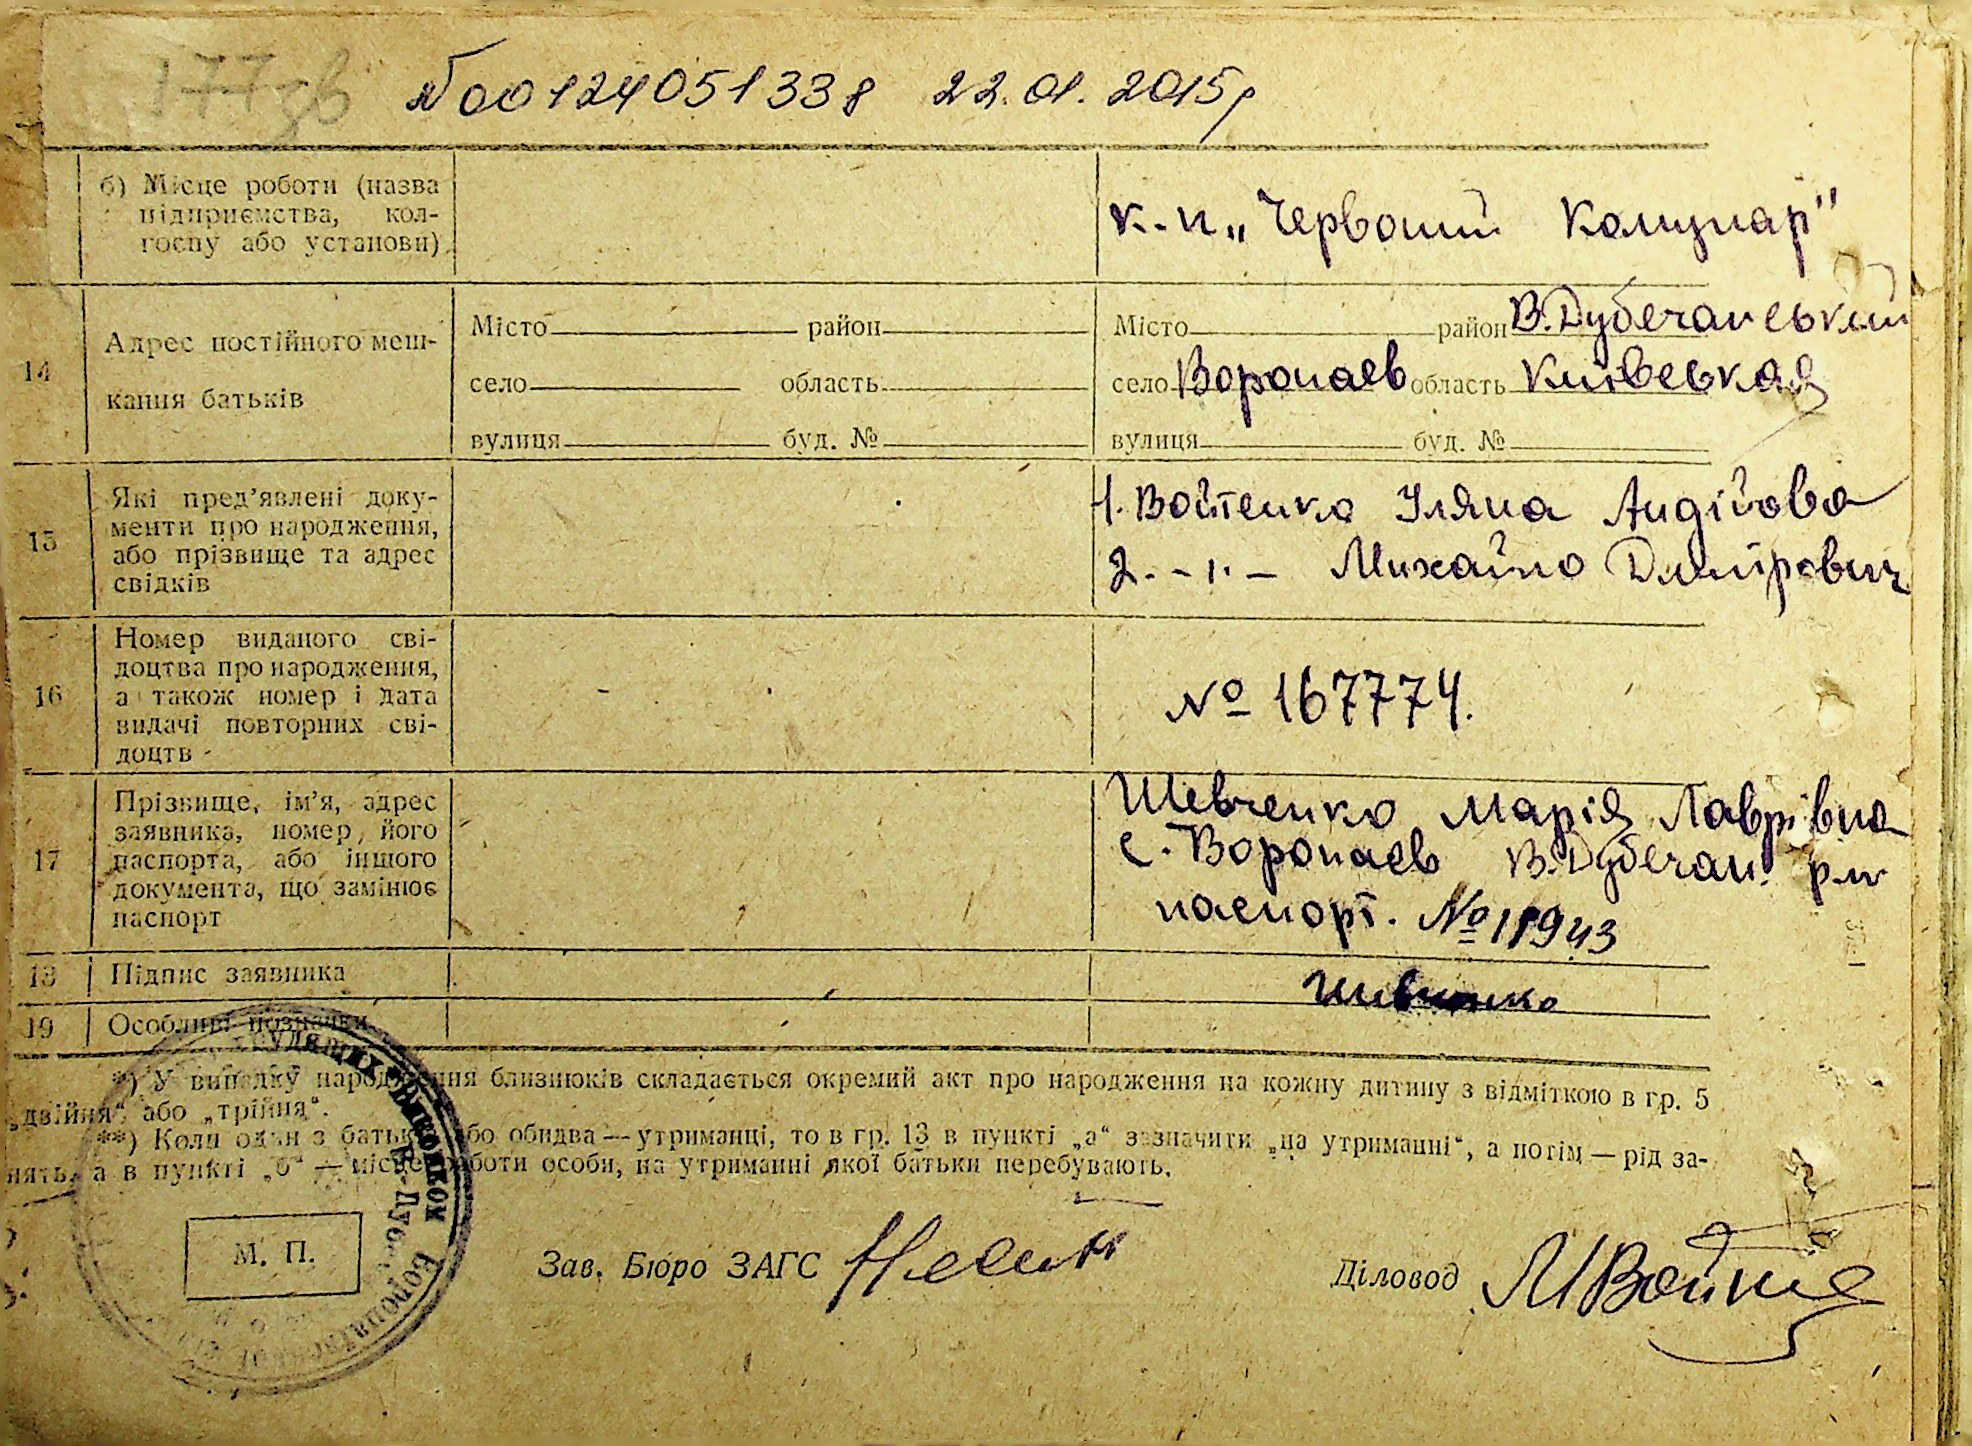 177зв
№00124051338 22.01.2015р
б) Місце роботи (назва
підприємства, кол-
госпу або установи)
к.п. „Червоний Комунар"
14
Адрес постійного меш-
кання батьків
Місто район
село область
вулиця буд. №
Місто район В.Дубечанський
село Воропаєв область Київськая
вулиця буд. №
15
Які пред'явлені доку-
менти про народження,
або прізвище та адрес
свідків
1. Войтенко Уляна Андіїовна
2. -"- Михайло Дмитрович
16
Номер виданого сві-
доцтва про народження,
а також номер і дата
видачі повторних сві-
доцтв
№ 167774.
17
Прізвище, ім'я, адрес
заявника, номер його
паспорта, або іншого
документа, що замінює
паспорт
Шевченко Марія Лаврівна
с. Воропаєв В.Дубечан. р-н
паспорт. №11943
18
Підпис заявника
19
Особливі позначки
*) У випадку народження близнюків складається окремий акт про народження на кожну дитину з відміткою в гр. 5
„двійня“ або „трійня“.
**) Коли один з батьків або обидва — утриманці, то в гр. 13 в пункті „а“ зазначити „на утриманні“, а потім — рід за-
нять, а в пункті „б“ — місце роботи особи, на утриманні якої батьки перебувають.
М. П.
Зав. Бюро ЗАГС
Діловод МВойте